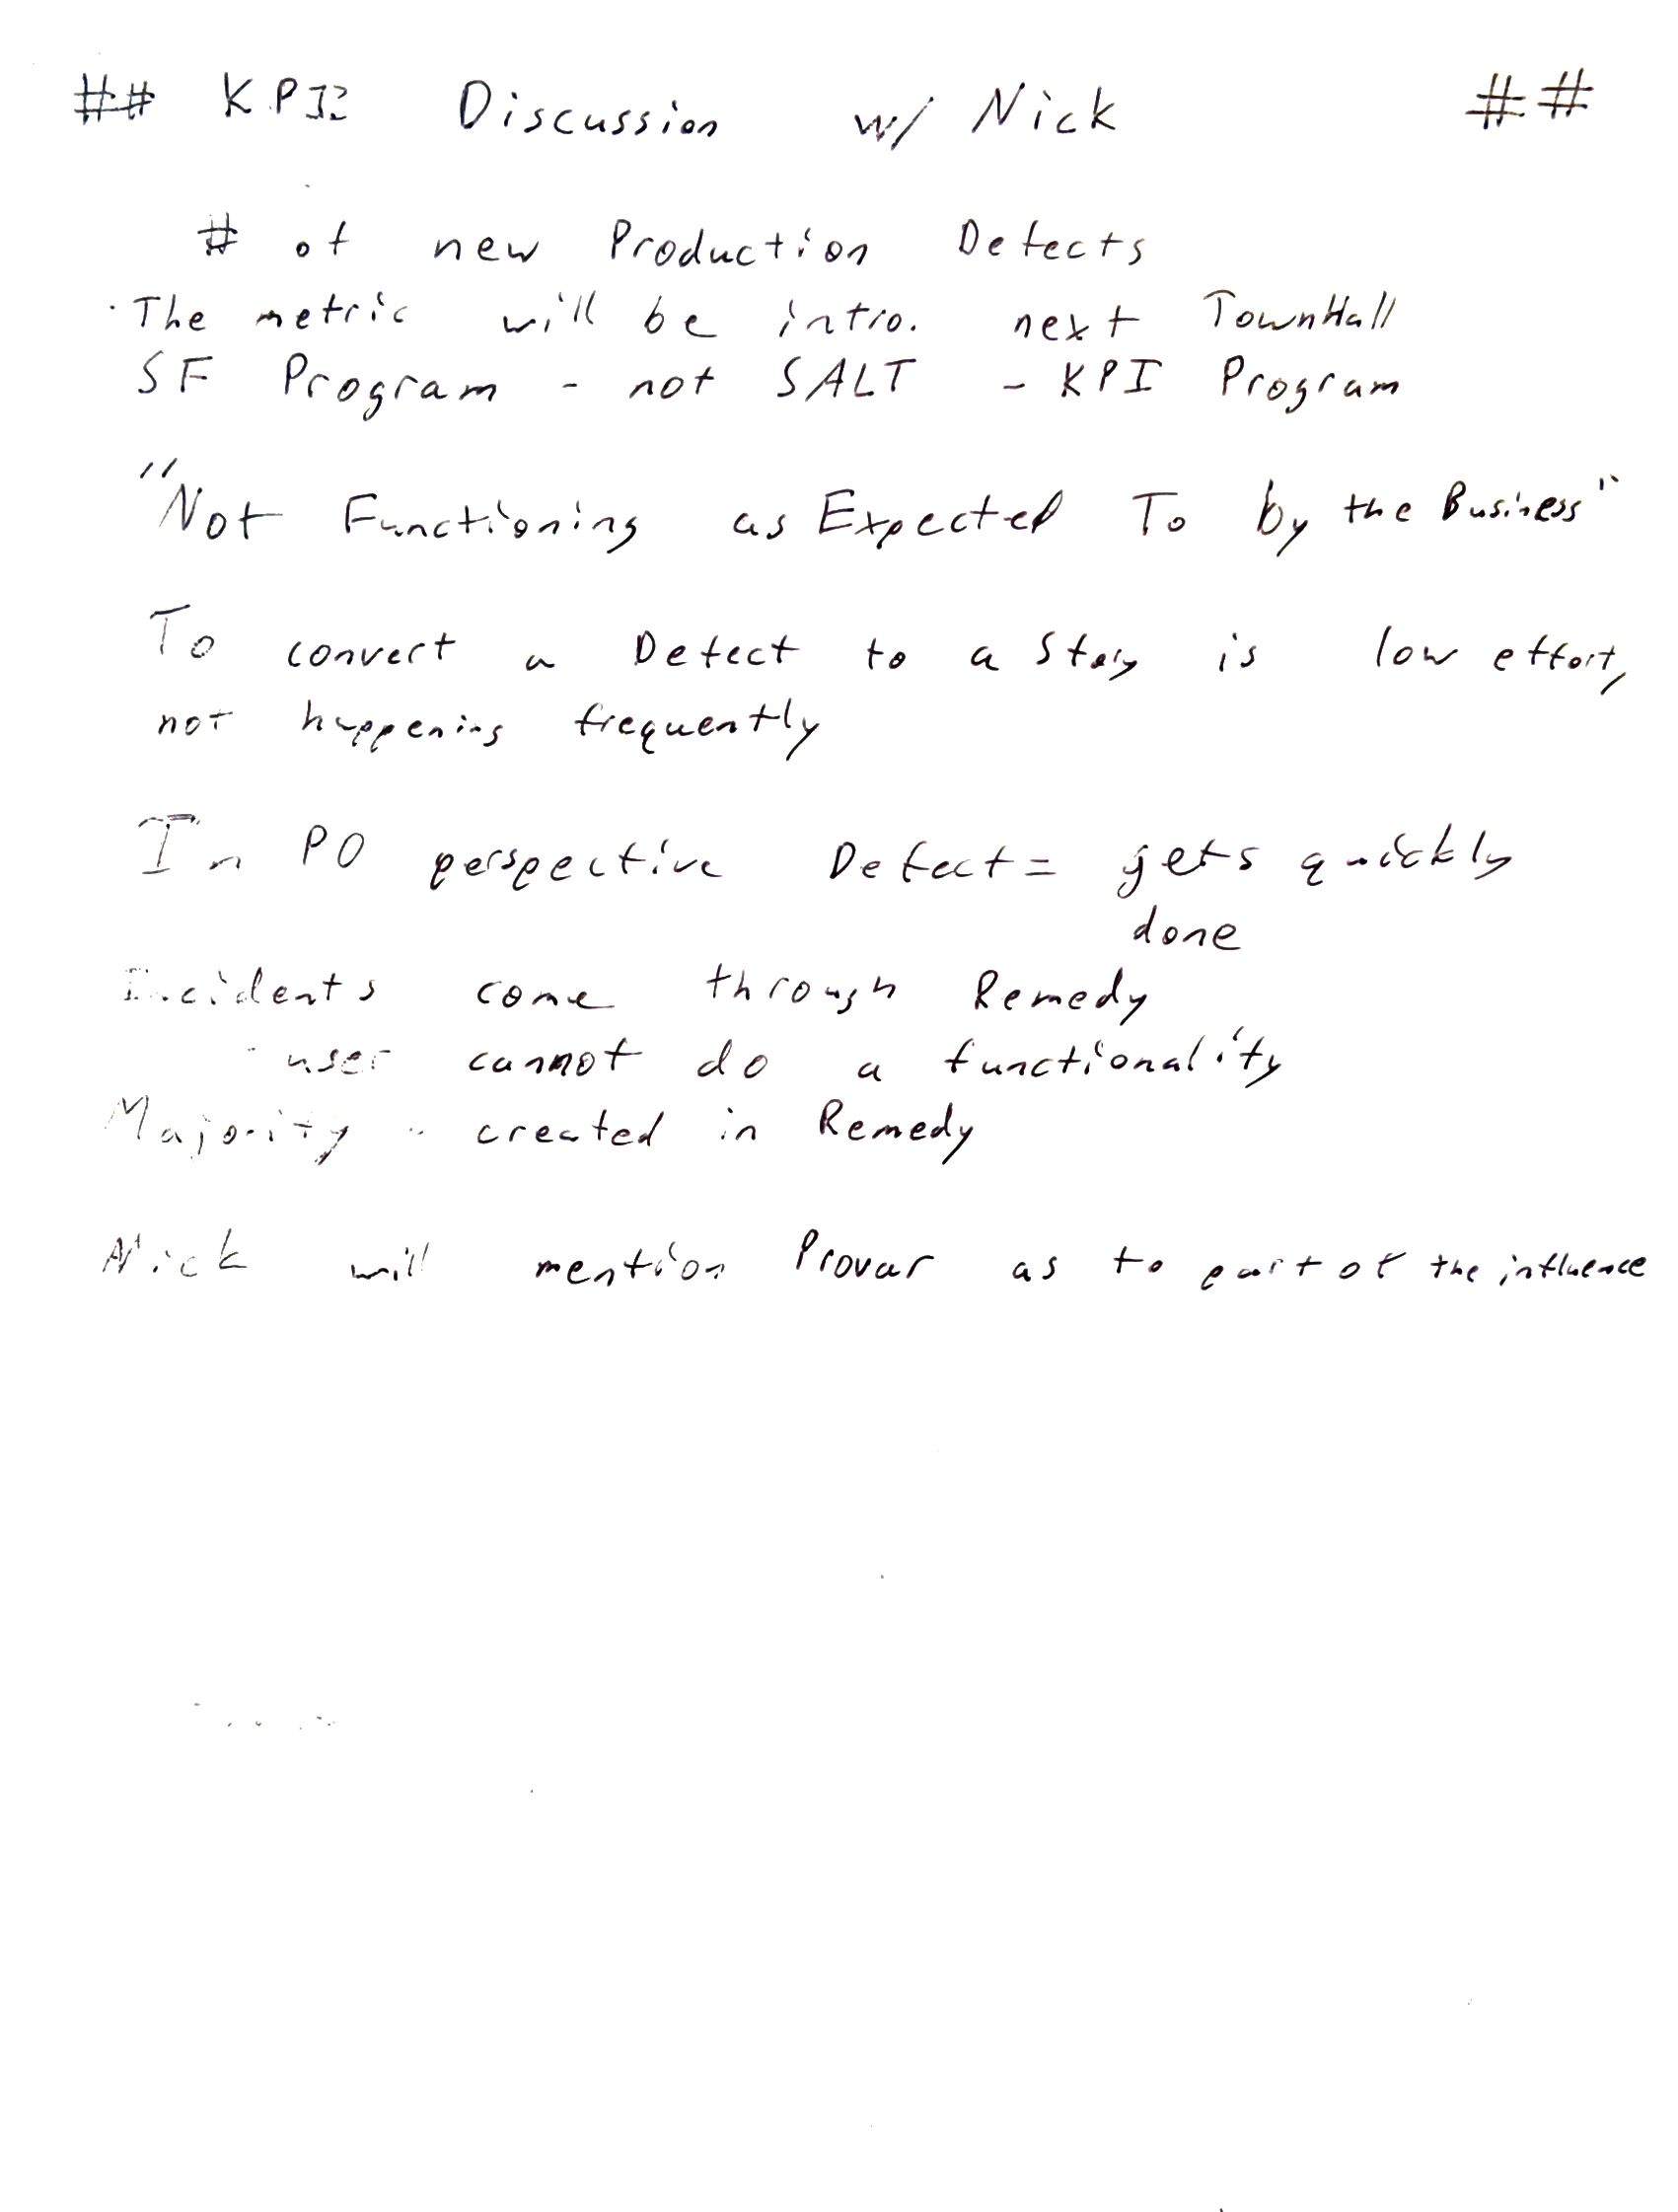 ## KPI2 Discussion w/ Nick ##
# of new Production Defects
· The metric will be intro. next TownHall
SF Program - not SALT - KPI Program
"Not Functioning as Expected To by the Business"
To convert a Defect to a Story is low effort,
not happening frequently
In PO perspective Defect = gets quickly
done
Incidents come through Remedy
- user cannot do a functionality
Majority - created in Remedy
Nick will mention Provar as to part of the influence